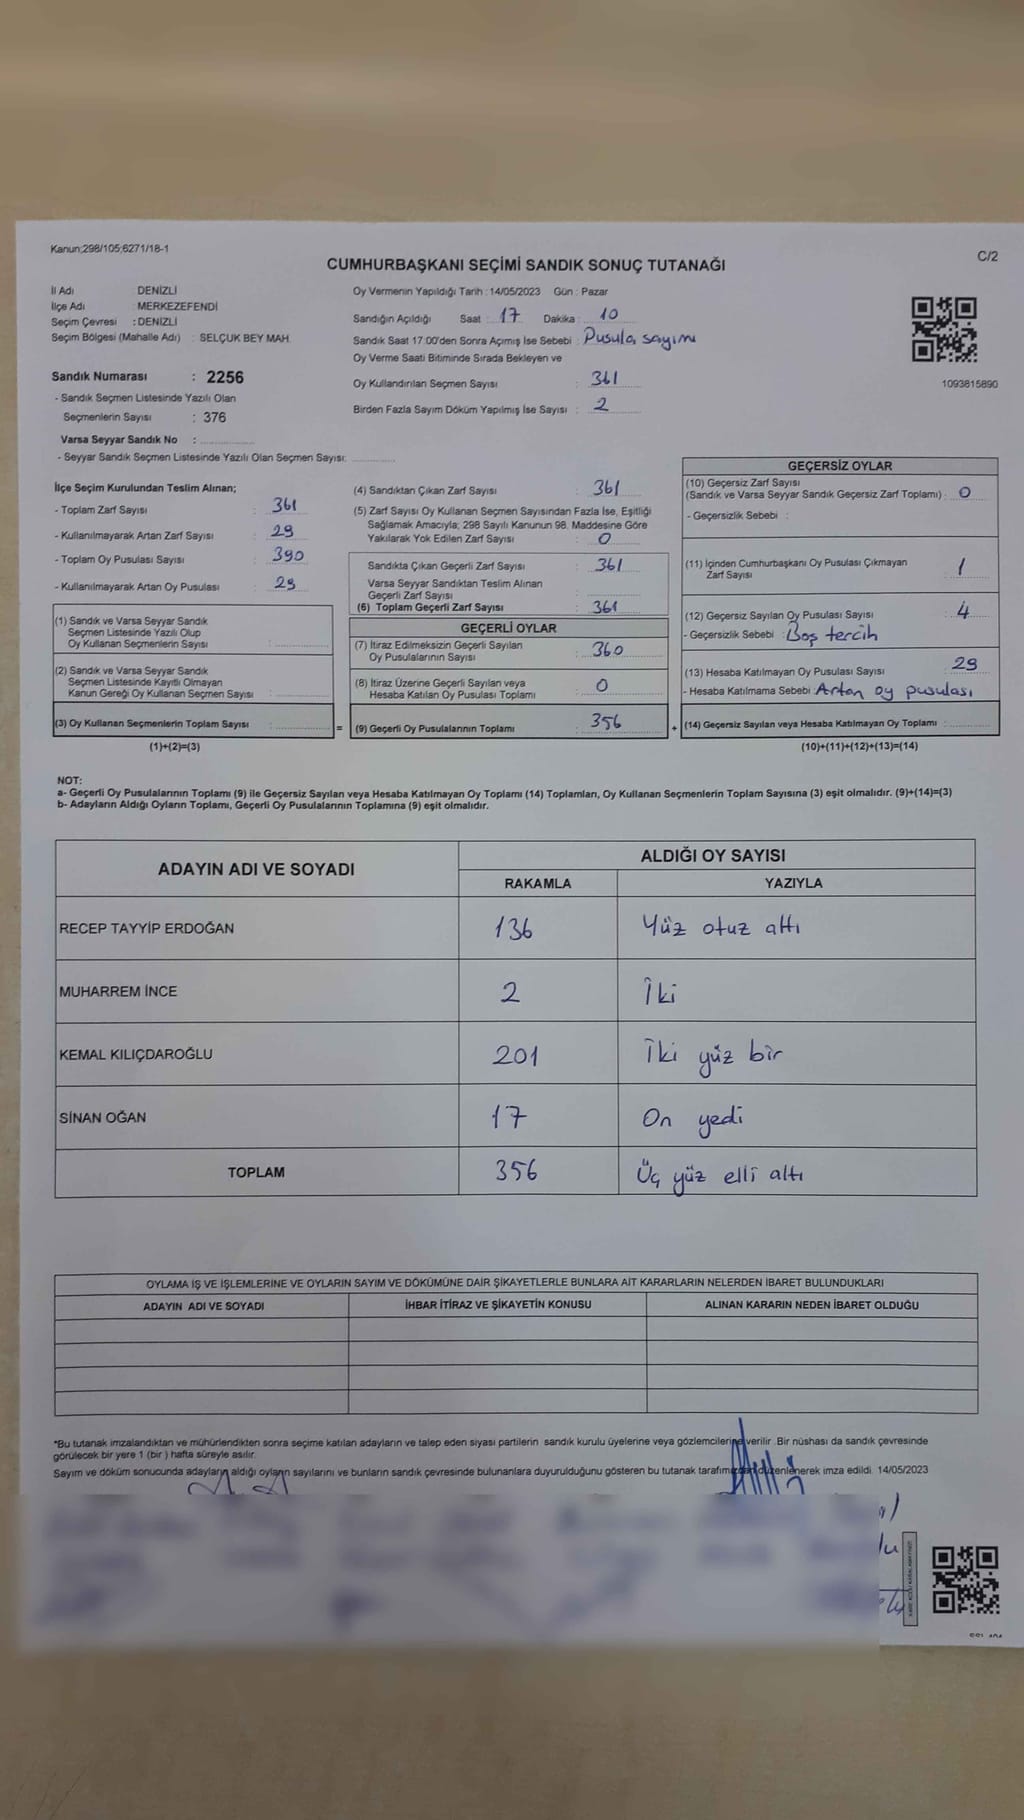 Kanun;298/105;6271/18-1
C/2
CUMHURBAŞKANI SEÇİMİ SANDIK SONUÇ TUTANAĞI
İl Adı : DENİZLİ
İlçe Adı : MERKEZEFENDİ
Seçim Çevresi : DENİZLİ
Seçim Bölgesi (Mahalle Adı) : SELÇUK BEY MAH.
Sandık Numarası : 2256
- Sandık Seçmen Listesinde Yazılı Olan
Seçmenlerin Sayısı : 376
Varsa Seyyar Sandık No :
- Seyyar Sandık Seçmen Listesinde Yazılı Olan Seçmen Sayısı:
Oy Vermenin Yapıldığı Tarih : 14/05/2023 Gün : Pazar
Sandığın Açıldığı Saat : 17 Dakika : 10
Sandık Saat 17:00'den Sonra Açımış İse Sebebi : Pusula sayımı
Oy Verme Saati Bitiminde Sırada Bekleyen ve
Oy Kullandırılan Seçmen Sayısı : 361
Birden Fazla Sayım Döküm Yapılmış İse Sayısı : 2
1093815890
İlçe Seçim Kurulundan Teslim Alınan;
- Toplam Zarf Sayısı : 361
- Kullanılmayarak Artan Zarf Sayısı : 29
- Toplam Oy Pusulası Sayısı : 390
- Kullanılmayarak Artan Oy Pusulası : 29
(1) Sandık ve Varsa Seyyar Sandık
Seçmen Listesinde Yazılı Olup
Oy Kullanan Seçmenlerin Sayısı :
(2) Sandık ve Varsa Seyyar Sandık
Seçmen Listesinde Kayıtlı Olmayan
Kanun Gereği Oy Kullanan Seçmen Sayısı :
(3) Oy Kullanan Seçmenlerin Toplam Sayısı :
(1)+(2)=(3)
=
(4) Sandıktan Çıkan Zarf Sayısı : 361
(5) Zarf Sayısı Oy Kullanan Seçmen Sayısından Fazla İse, Eşitliği
Sağlamak Amacıyla; 298 Sayılı Kanunun 98. Maddesine Göre
Yakılarak Yok Edilen Zarf Sayısı : 0
Sandıkta Çıkan Geçerli Zarf Sayısı : 361
Varsa Seyyar Sandıktan Teslim Alınan
Geçerli Zarf Sayısı :
(6) Toplam Geçerli Zarf Sayısı : 361
GEÇERLİ OYLAR
(7) İtiraz Edilmeksizin Geçerli Sayılan
Oy Pusulalarının Sayısı : 360
(8) İtiraz Üzerine Geçerli Sayılan veya
Hesaba Katılan Oy Pusulası Toplamı : 0
(9) Geçerli Oy Pusulalarının Toplamı : 356
+
GEÇERSİZ OYLAR
(10) Geçersiz Zarf Sayısı
(Sandık ve Varsa Seyyar Sandık Geçersiz Zarf Toplamı) : 0
- Geçersizlik Sebebi :
(11) İçinden Cumhurbaşkanı Oy Pusulası Çıkmayan
Zarf Sayısı : 1
(12) Geçersiz Sayılan Oy Pusulası Sayısı : 4
- Geçersizlik Sebebi : Boş tercih
(13) Hesaba Katılmayan Oy Pusulası Sayısı : 29
- Hesaba Katılmama Sebebi : Artan oy pusulası
(14) Geçersiz Sayılan veya Hesaba Katılmayan Oy Toplamı :
(10)+(11)+(12)+(13)=(14)
NOT:
a- Geçerli Oy Pusulalarının Toplamı (9) ile Geçersiz Sayılan veya Hesaba Katılmayan Oy Toplamı (14) Toplamları, Oy Kullanan Seçmenlerin Toplam Sayısına (3) eşit olmalıdır. (9)+(14)=(3)
b- Adayların Aldığı Oyların Toplamı, Geçerli Oy Pusulalarının Toplamına (9) eşit olmalıdır.
ADAYIN ADI VE SOYADI
ALDIĞI OY SAYISI
RAKAMLA YAZIYLA
RECEP TAYYİP ERDOĞAN 136 Yüz otuz altı
MUHARREM İNCE 2 İki
KEMAL KILIÇDAROĞLU 201 İki yüz bir
SİNAN OĞAN 17 On yedi
TOPLAM 356 Üç yüz elli altı
OYLAMA İŞ VE İŞLEMLERİNE VE OYLARIN SAYIM VE DÖKÜMÜNE DAİR ŞİKAYETLERLE BUNLARA AİT KARARLARIN NELERDEN İBARET BULUNDUKLARI
ADAYIN ADI VE SOYADI İHBAR İTİRAZ VE ŞİKAYETİN KONUSU ALINAN KARARIN NEDEN İBARET OLDUĞU
*Bu tutanak imzalandıktan ve mühürlendikten sonra seçime katılan adayların ve talep eden siyasi partilerin sandık kurulu üyelerine veya gözlemcilerine verilir. Bir nüshası da sandık çevresinde
görülecek bir yere 1 (bir) hafta süreyle asılır.
Sayım ve döküm sonucunda adayların aldığı oyların sayılarını ve bunların sandık çevresinde bulunanlara duyurulduğunu gösteren bu tutanak tarafımızdan düzenlenerek imza edildi. 14/05/2023